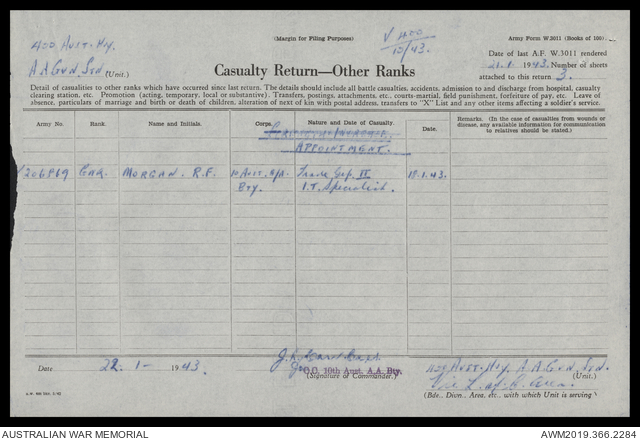 (Margin for Filing Purposes)
Army Form W.3011 (Books of 100).
400 Aust. Hy.
A A Gun Stn (Unit.)
V 400
10/43.
Date of last A.F. W.3011 rendered
21.1. 1943. Number of sheets
attached to this return 3.
Casualty Return—Other Ranks
Detail of casualties to other ranks which have occurred since last return. The details should include all battle casualties, accidents, admission to and discharge from hospital, casualty
clearing station, etc. Promotion (acting, temporary, local or substantive). Transfers, postings, attachments, etc., courts-martial, field punishment, forfeiture of pay, etc. Leave of
absence, particulars of marriage and birth or death of children, alteration of next of kin with postal address, transfers to "X" List and any other items affecting a soldier's service.
Army No. Rank. Name and Initials. Corps. Nature and Date of Casualty. Date. Remarks. (In the case of casualties from wounds or
disease, any available information for communication
to relatives should be stated.)
APPOINTMENT.
206869 Gnr. MORGAN. R.F. 10 Aust. A/A Trade Gp. II 18.1.43.
Bty. I.T. Specialist.
Date 22. 1- 1943. Capt.
O.C. 10th Aust. A.A. Bty.
(Signature of Commander.)
400 Aust. Hy. A A Gun Stn.
(Unit.)
(Bde., Divn., Area, etc., with which Unit is serving)
AUSTRALIAN WAR MEMORIAL
AWM2019.366.2284